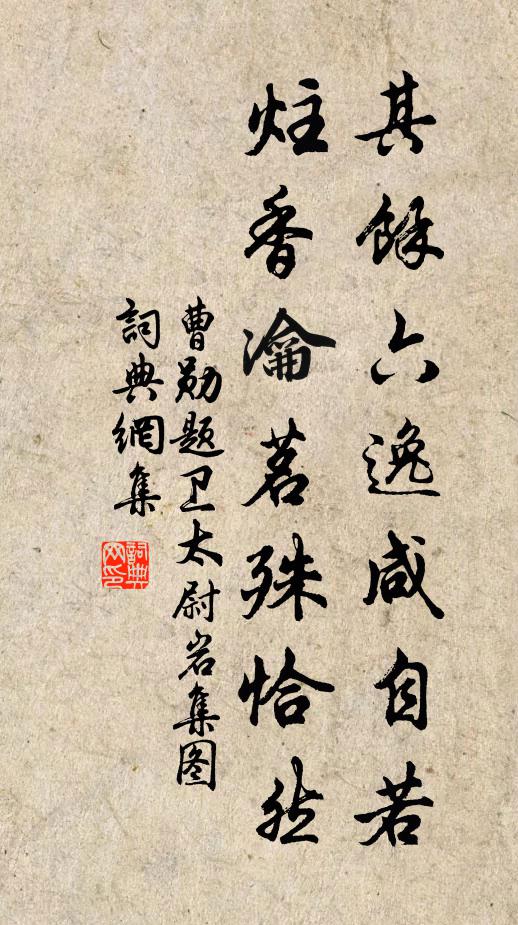 其餘六逸咸自若
炷香瀹茗殊恰然
曹勋题卫太尉岩集图
詞典網集
詞典
网印